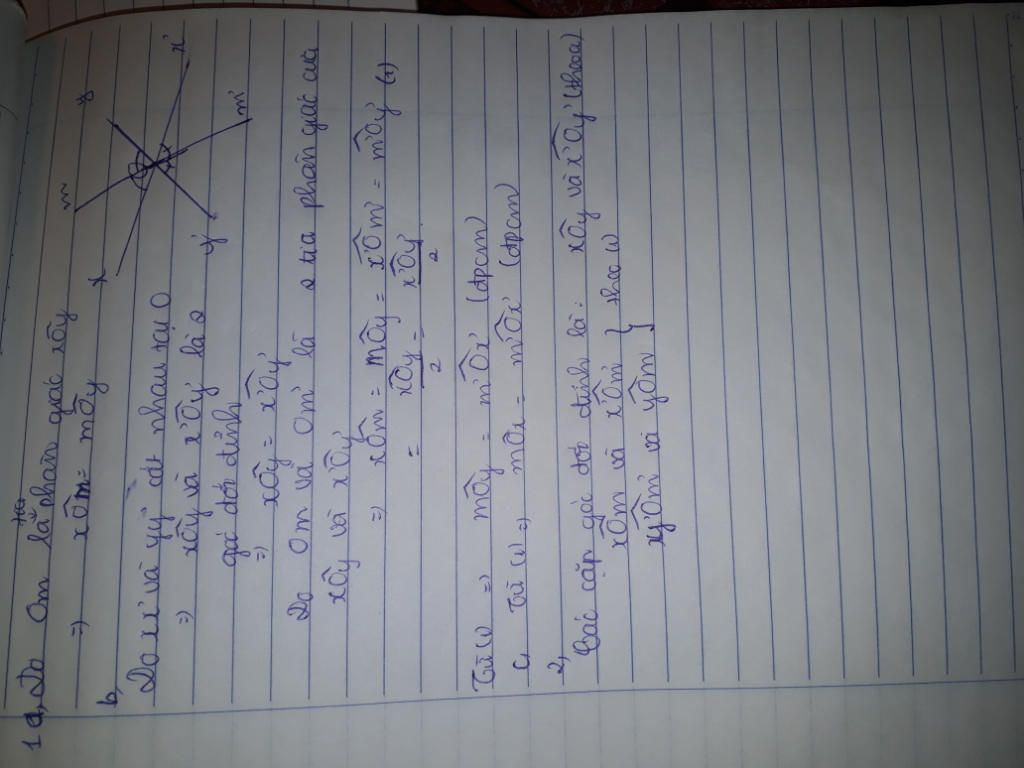 1 a, Do Om là tia phân giác xOy
=> xÔm = mÔy
m
y
x
x'
y'
m'
b,
Do xx' và yy' cắt nhau tại O
=> xÔy và x'Ôy' là 2
góc đối đỉnh
=> xÔy = x'Ôy'
Do Om và Om' là 2 tia phân giác của
xÔy và x'Ôy'
=> xÔm = mÔy = x'Ôm' = m'Ôy' (1)
= xÔy/2 = x'Ôy'/2
Từ (1) => mÔy = m'Ôx' (đpcm)
c, Từ (1) => mÔx = m'Ôx' (đpcm)
2,
Các cặp góc đối đỉnh là: xÔy và x'Ôy' (theo a)
xÔm và x'Ôm' } theo (1)
y'Ôm' và yÔm